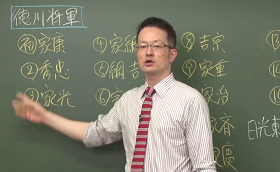 徳川将軍
初家康
②秀忠
③家光
④家
⑤綱吉
⑥家
⑧吉宗
⑨家重
治
斉
慶
日光東